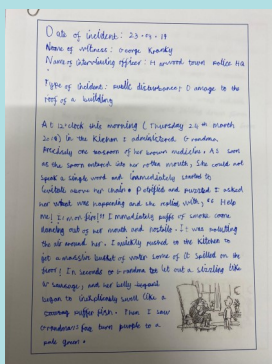 Date of incident: 23-04-19
Name of witness: George Kranky
Name of interviewing officer: Horwood town police HQ
Type of incident: public disturbance; Damage to the
roof of a building
At 12 o'clock this morning (Thursday 24th march
2019) in the Kitchen I administered Grandma
precisely one teaspoon of her brown medicine. As soon
as the spoon entered into her mouth, She could not
speak a single word and immediately started to
levitate above her chair. Petrified and puzzled I asked
her what was happening and she replied with, "Help
me! I'm on fire!" Immediately puffs of smoke came
out of her mouth and nostrils. it was polluting
the air around her. I quickly rushed to the kitchen to
get a massive bucket of water. Some of it spilled on the
floor! In seconds Grandma let out a sizzling like
a sausage, and her belly
began to swell like a
puffer fish. Then I saw
Grandma's face turn purple to a
pale green.